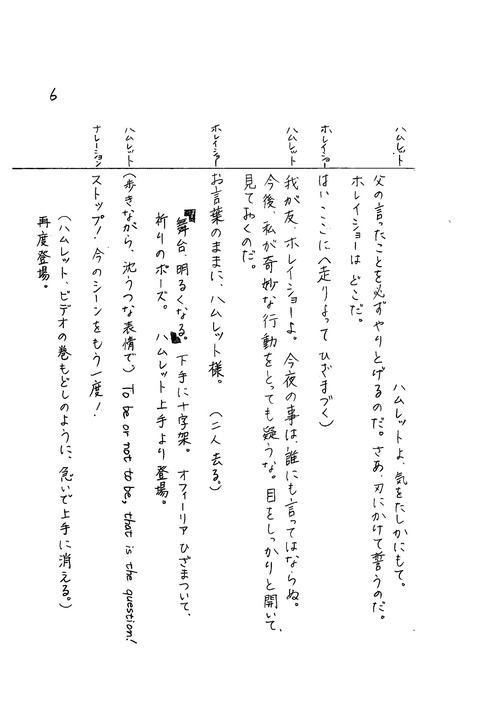 6
ハムレットよ、気をたしかにもて。
ハムレット 父の言ったことを必ずやりとげるのだ。さあ、刃にかけて誓うのだ。
ホレイショーは どこだ。
ホレイショー はい ここに(走りよって ひざまづく)
ハムレット 我が友、ホレイショーよ。今夜の事は、誰にも言ってはならぬ。
今後、私が奇妙な行動をとっても疑うな。目をしっかりと開いて、
見ておくのだ。
ホレイショー お言葉のままに、ハムレット様。 (二人 去る。)
舞台、明るくなる。下手に十字架。 オフィーリア ひざまついて、
祈りのポーズ。 ハムレット上手より登場。
ハムレット (歩きながら、沈うつな表情で) To be or not to be, that is the question!
ナレーション ストップ! 今のシーンをもう一度!
(ハムレット、ビデオの巻もどしのように、急いで上手に消える。)
再度登場。